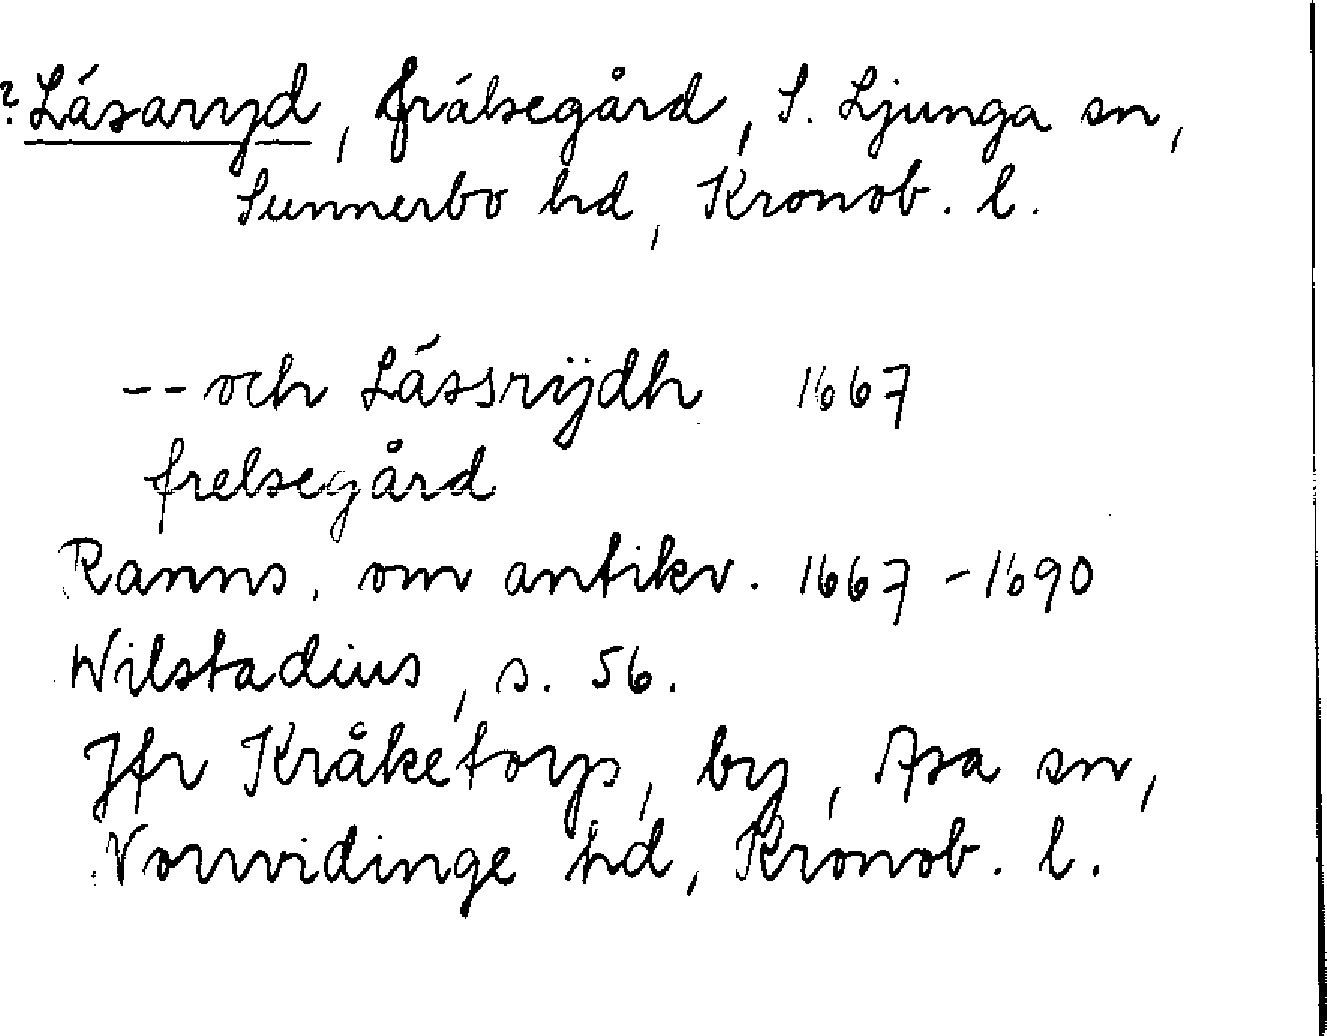 ? Låsaryd, frälsegård, S. Ljunga sn,
Sunnerbo hd, Kronob. l.
-- och Låssrÿdh 1667
frelsegård
Ranns. om antikv. 1667-1690
Wilstadius, s. 56.
Jfr Kråketorp, by, Asa sn,
Norrvidinge hd, Kronob. l.